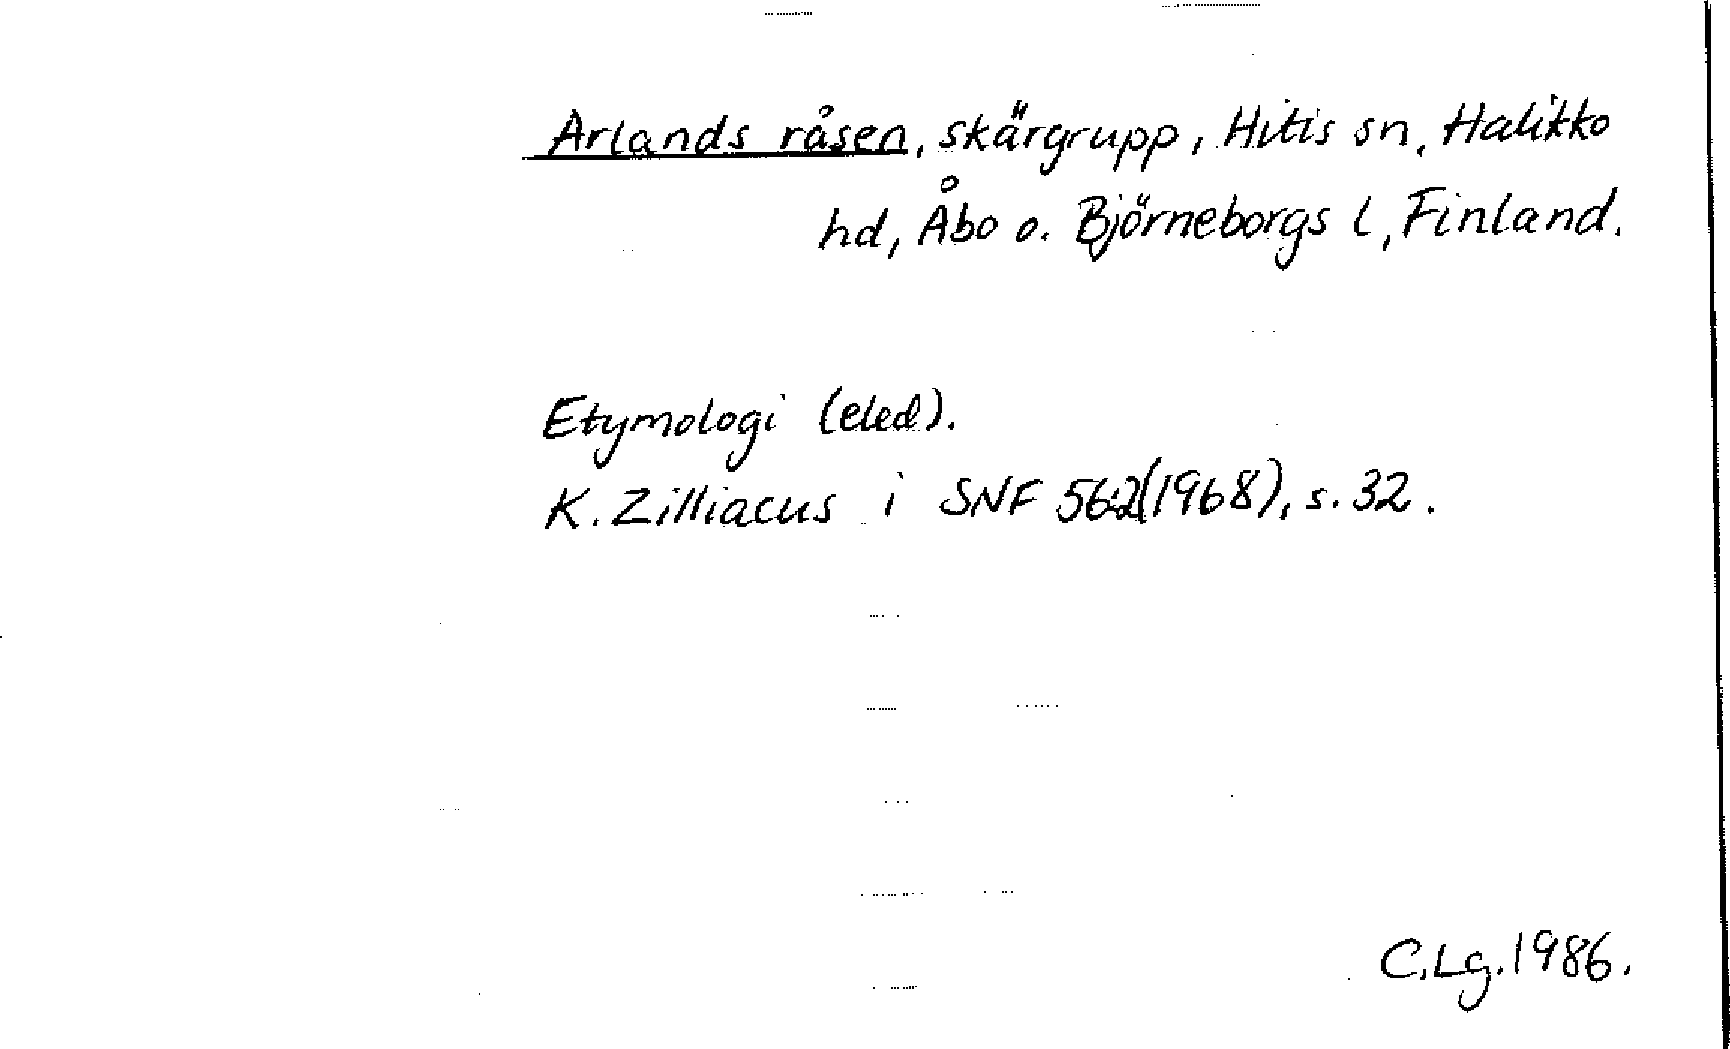 Arlands råsen, skärgrupp, Hitis sn, Halikko
hd, Åbo o. Björneborgs l, Finland.
Etymologi (eled).
K. Zilliacus i SNF 56:2(1968), s. 32.
C.Lg. 1986.